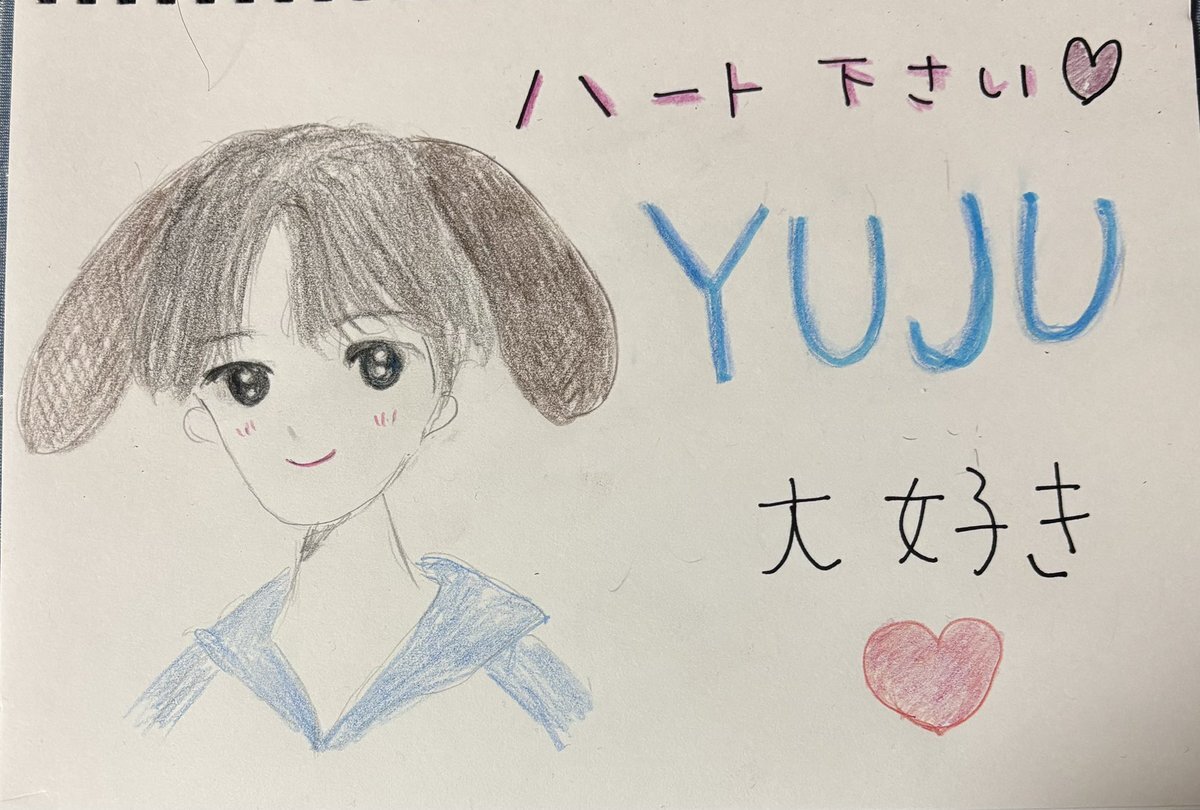 ハート 下さい♥
YUJU
大好き